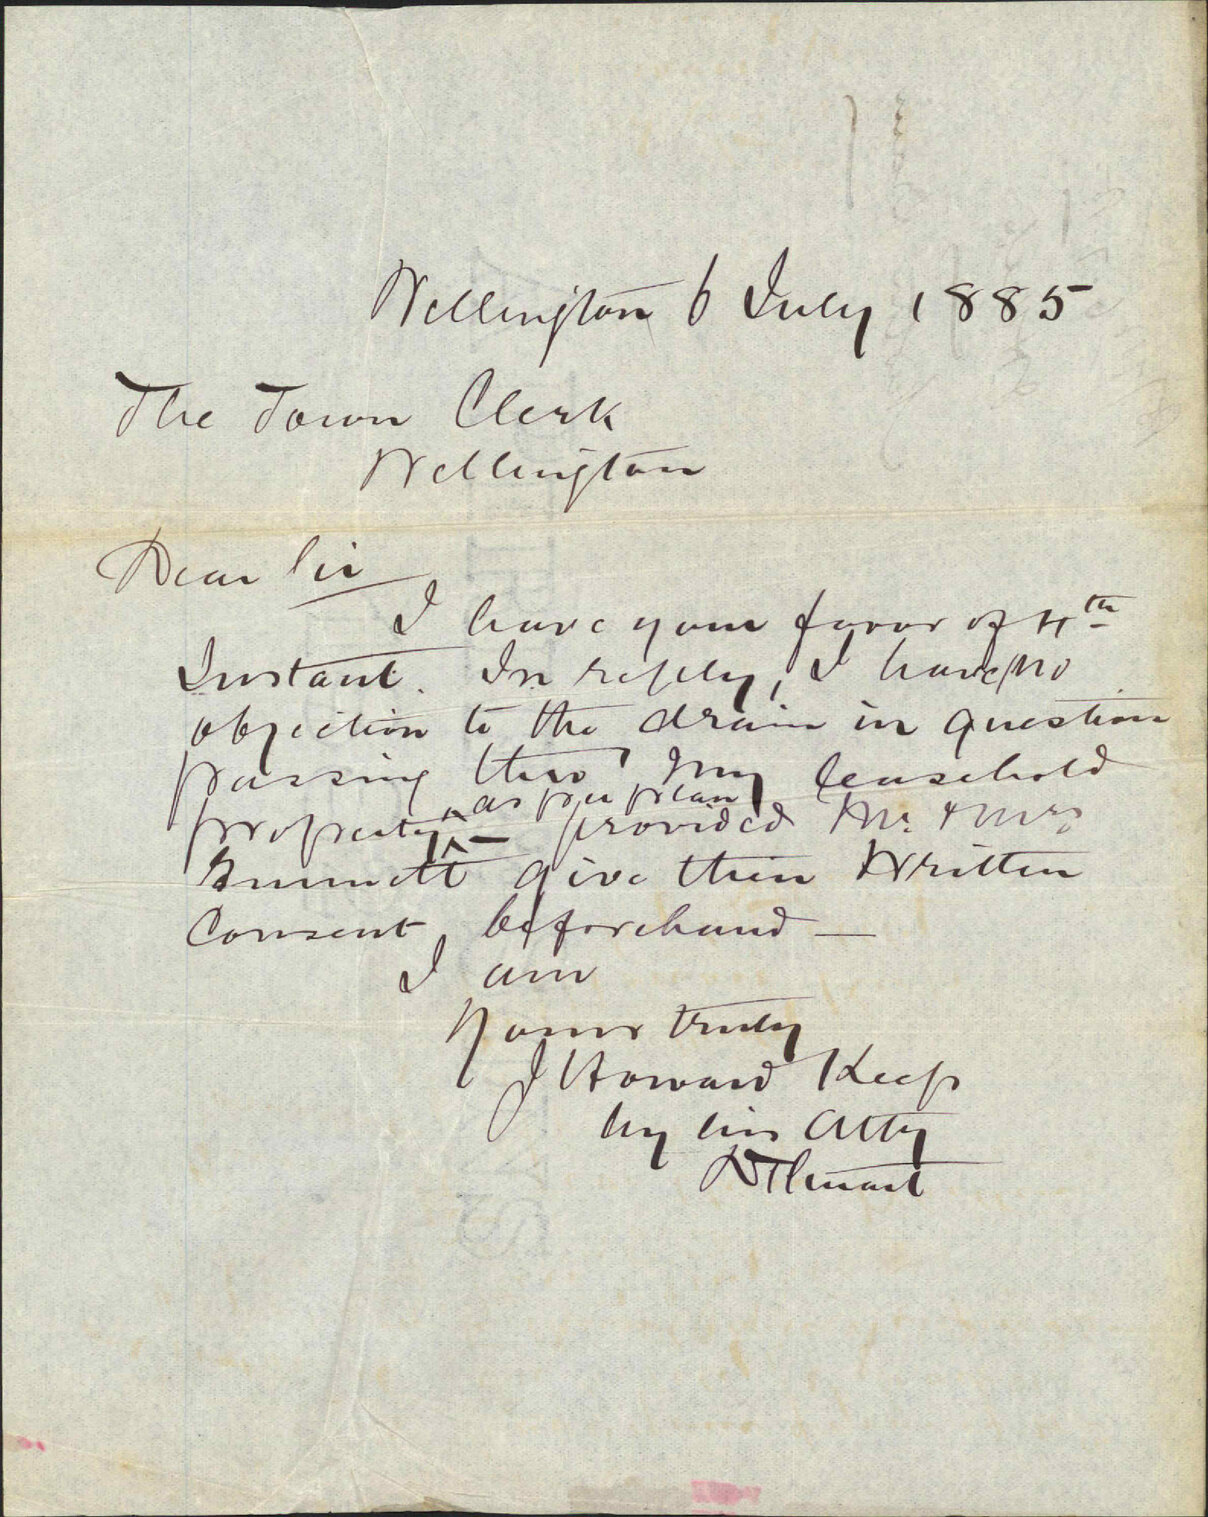 Wellington 6 July 1885
The Town Clerk
Wellington
Dear Sir
I have your favor of 4th
Instant. In reply, I have no
objection to the drain in question
passing thro' my leasehold
as per plan
property ^ — provided Mr. & Mrs
give their written
Consent beforehand —
I am
Yours truly
J Howard Keep
by his Atty